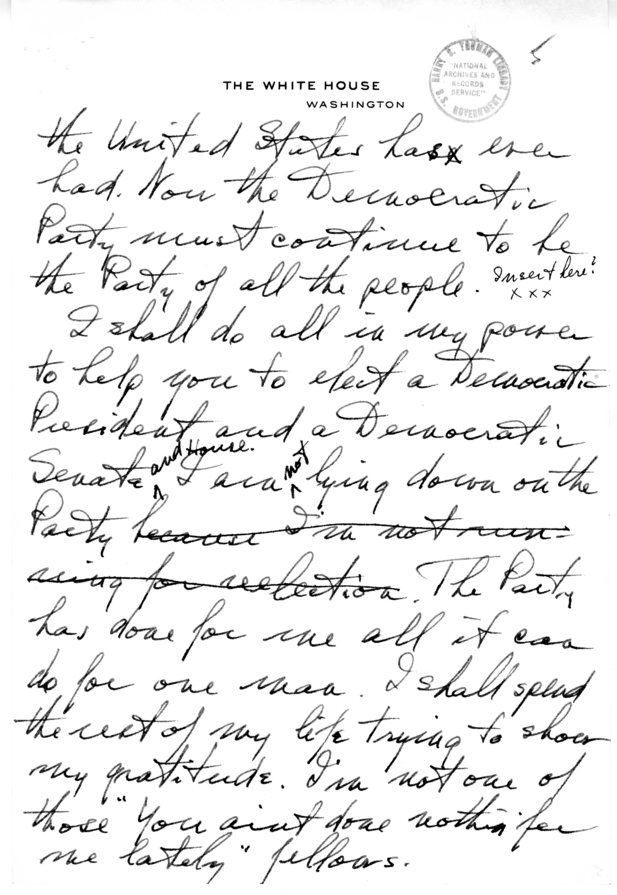 HARRY S. TRUMAN LIBRARY
"NATIONAL
ARCHIVES AND
RECORDS
SERVICE"
U.S. GOVERNMENT
THE WHITE HOUSE
WASHINGTON
the United States has ever
had. Now the Democratic
Party must continue to be
the Party of all the people. Insert here?
x x x
I shall do all in my power
to help you to elect a Democratic
President and a Democratic
Senate and House. I am not lying down on the
Party because I'm not run-
ning for reelection. The Party
has done for me all it can
do for one man. I shall spend
the rest of my life trying to show
my gratitude. I'm not one of
those "You ain't done nothin' for
me lately" fellows.